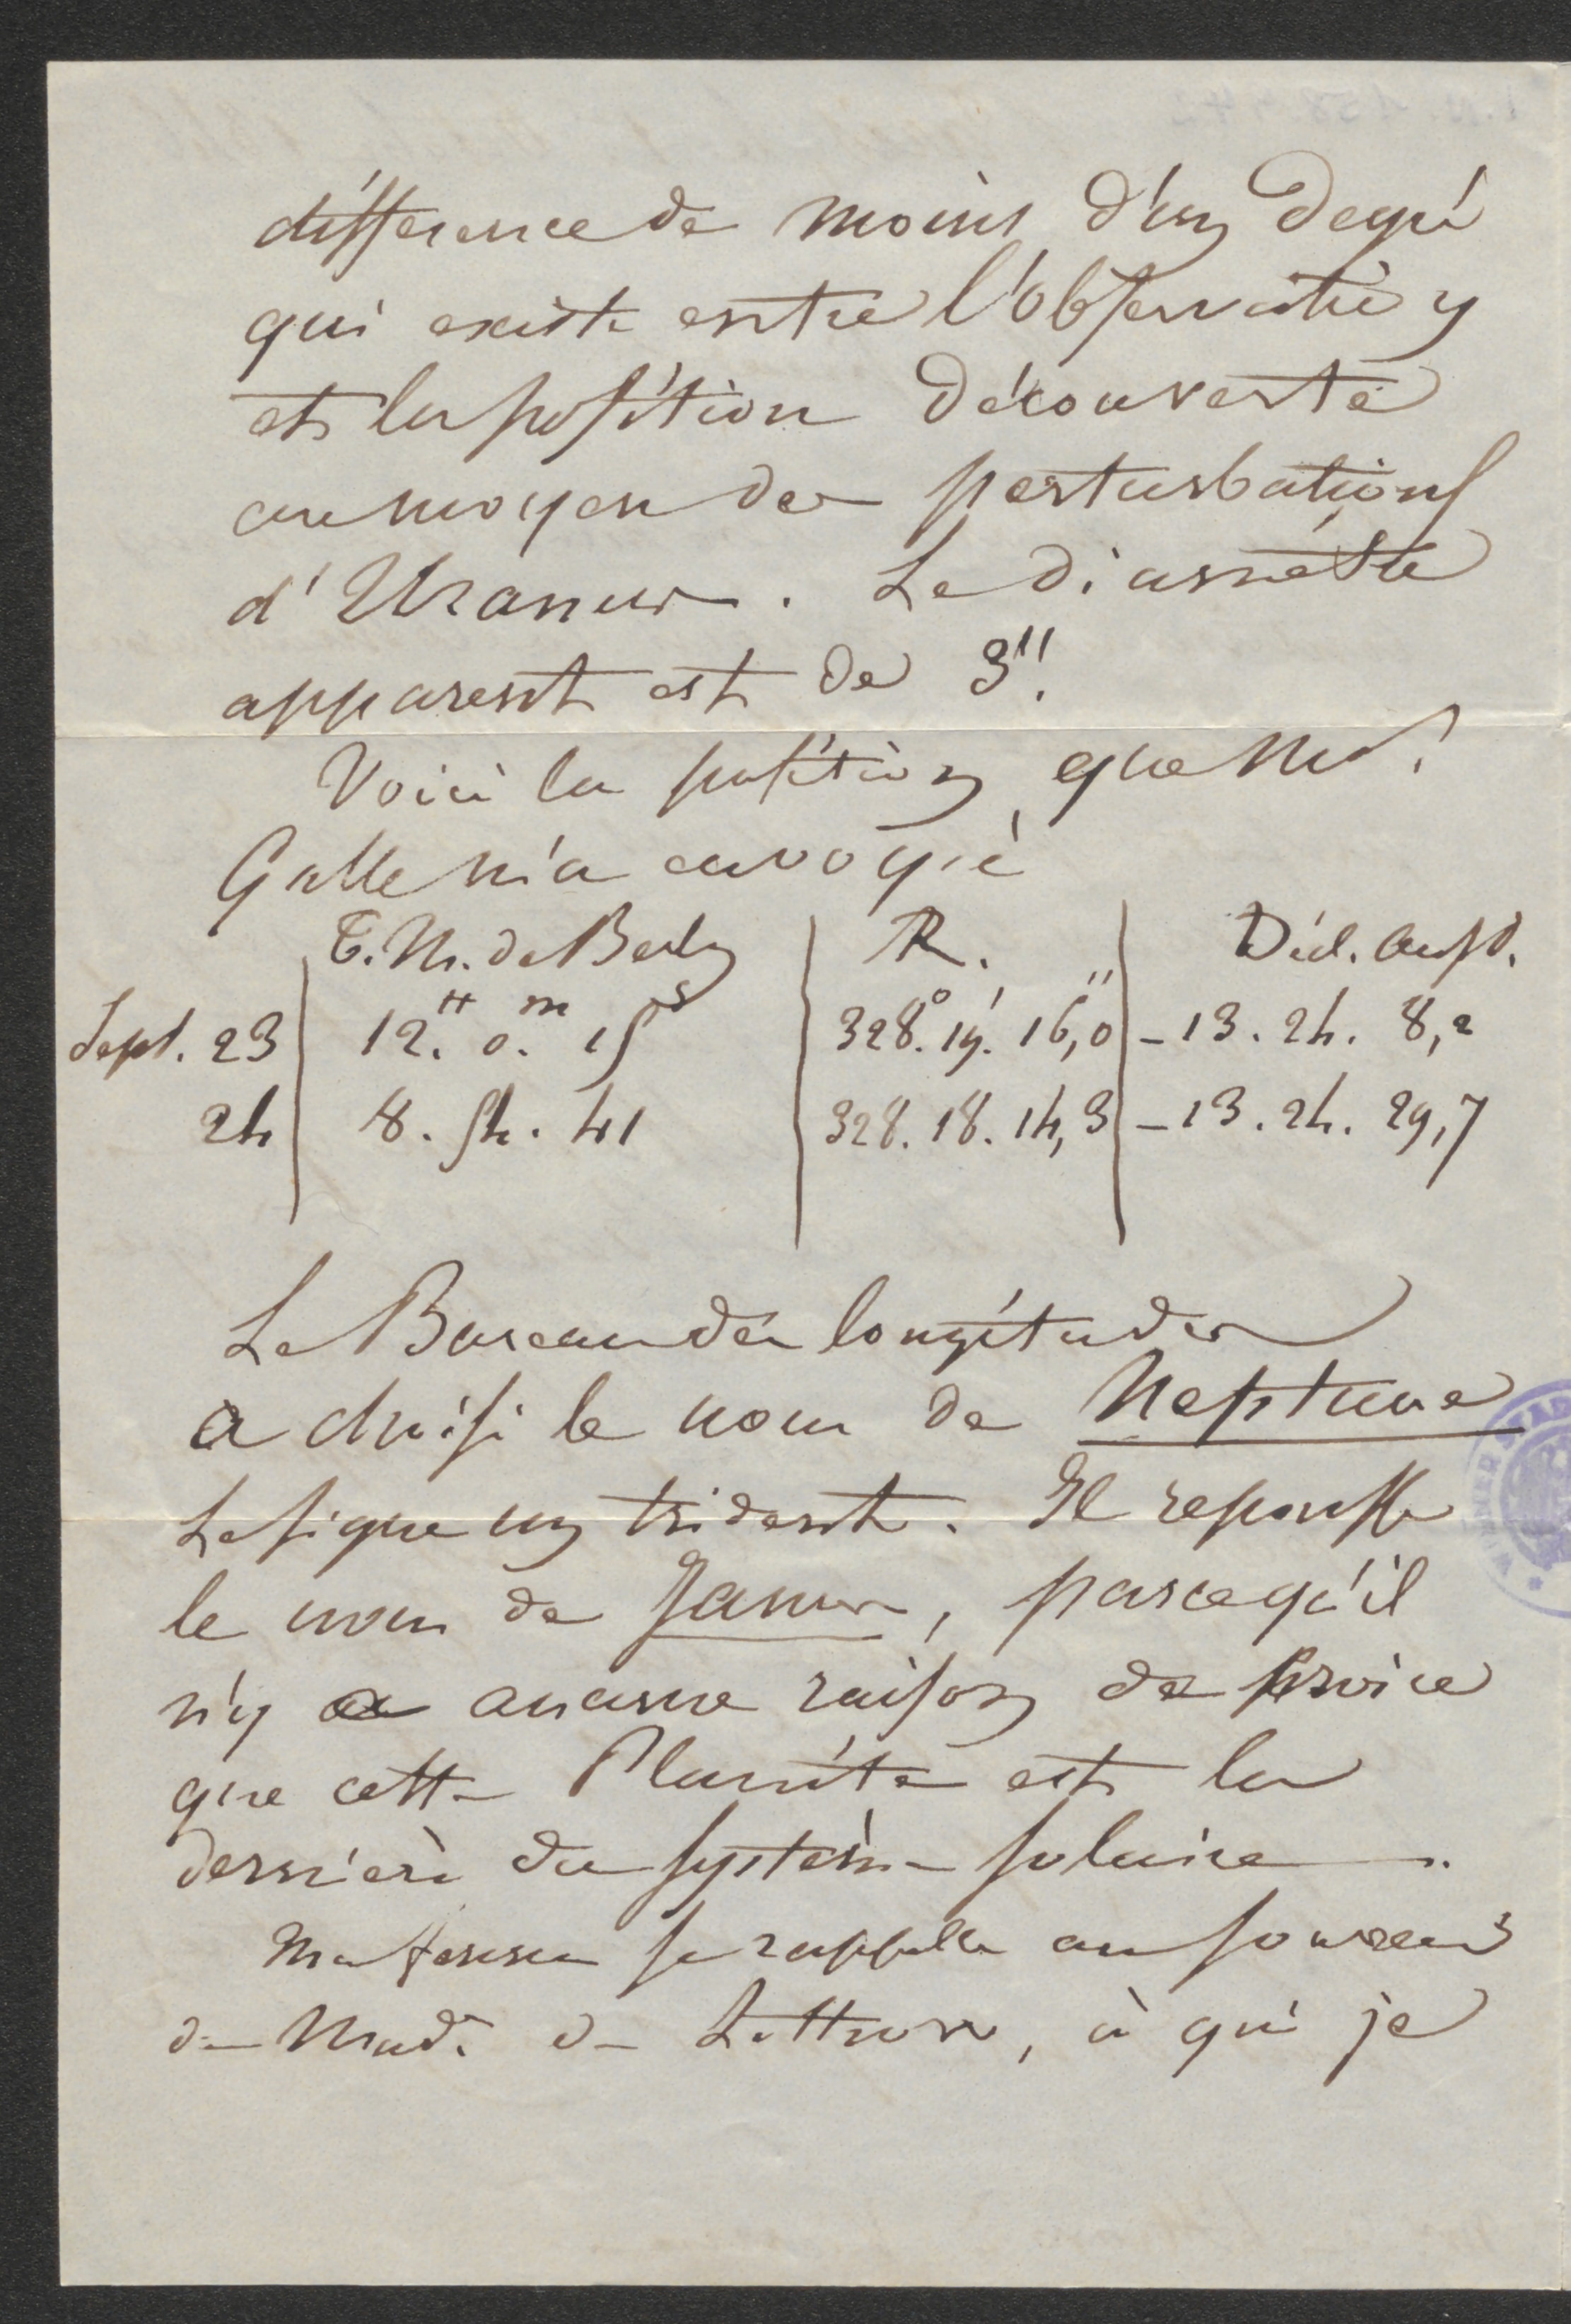 différence de moins d'un degré
qui existe entre l'observation
et la position découverte
au moyen des perturbations
d'Uranus. Le diamètre
apparent est de 3".
Voici la position que Mr.
Galle m'a envoyé
T. M. de Berlin | R. | Décl. aust.
Sept. 23 | 12.H 0.m 15s | 328.° 19.' 16,"0 | – 13. 24. 8,2
24 | 8. 54. 41 | 328. 18. 14,3 | – 13. 24. 29,7
Le Bureau des longitudes
a choisi le nom de Neptune
Le signe un trident. Il repousse
le nom de Janus, parcequ'il
n'y a aucune raison de croire
que cette Planète est la
dernière du système solaire.
Ma femme se rappelle au souvenir
de Mad. de Littrow, à qui je
WIENER STAD